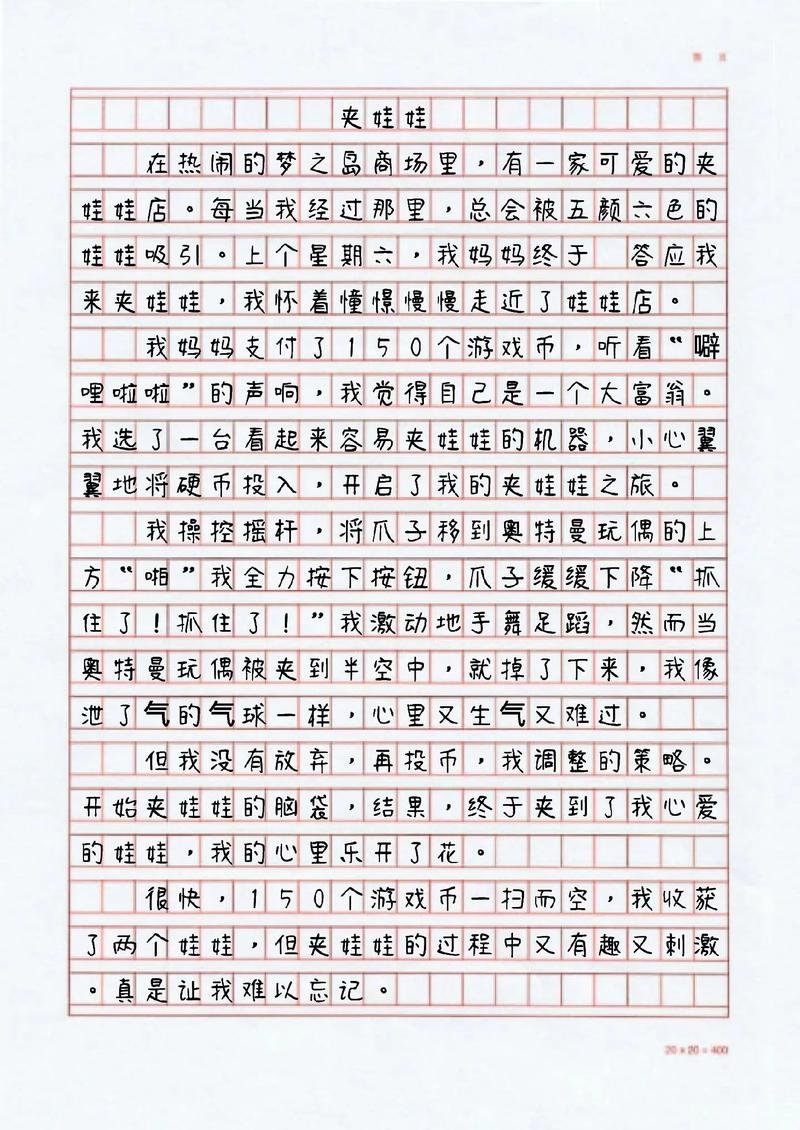 夹娃娃
在热闹的梦之岛商场里，有一家可爱的夹
娃娃店。每当我经过那里，总会被五颜六色的
娃娃吸引。上个星期六，我妈妈终于 答应我
来夹娃娃，我怀着憧憬慢慢走近了娃娃店。
我妈妈支付了150个游戏币，听看“噼
哩啦啦”的声响，我觉得自己是一个大富翁。
我选了一台看起来容易夹娃娃的机器，小心翼
翼地将硬币投入，开启了我的夹娃娃之旅。
我操控摇杆，将爪子移到奥特曼玩偶的上
方“啪”我全力按下按钮，爪子缓缓下降“抓
住了！抓住了！”我激动地手舞足蹈，然而当
奥特曼玩偶被夹到半空中，就掉了下来，我像
泄了气的气球一样，心里又生气又难过。
但我没有放弃，再投币，我调整的策略。
开始夹娃娃的脑袋，结果，终于夹到了我心爱
的娃娃，我的心里乐开了花。
很快，150个游戏币一扫而空，我收获
了两个娃娃，但夹娃娃的过程中又有趣又刺激
。真是让我难以忘记。
20×20=400